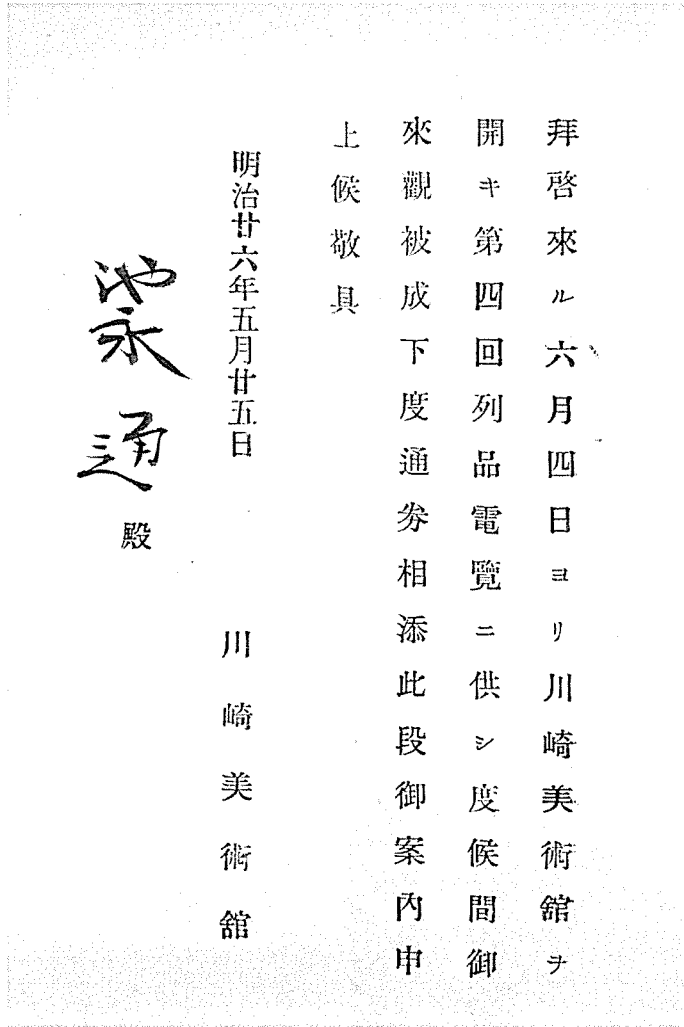 拜啓來ル六月四日ヨリ川崎美術舘ヲ
開キ第四回列品電覽ニ供シ度候間御
來觀被成下度通券相添此段御案內申
上候敬具
明治廿六年五月廿五日
川崎美術舘
池永通殿